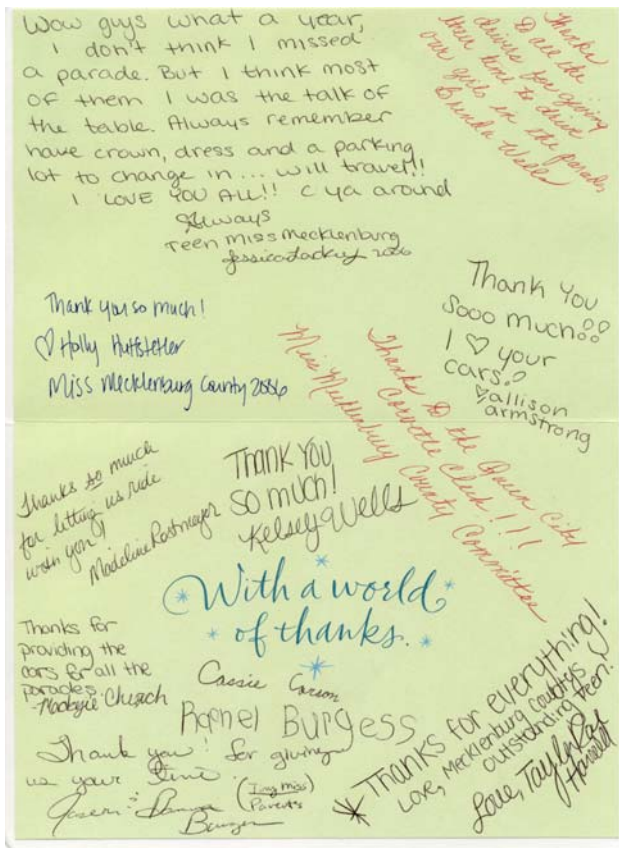 Wow guys what a year,
I don't think I missed
a parade. But I think most
of them I was the talk of
the table. Always remember
have crown, dress and a parking
lot to change in... will travel!!
I LOVE YOU ALL!! c ya around
Always
Teen Miss Mecklenburg
Jessica Lackey 2006
Thanks
to all the
drivers for giving
their time to drive
our girls in the parades
Brenda Wells
Thank you so much!
♡ Holly Huffstetler
Miss Mecklenburg County 2006
Thank You
Sooo much!!
I ♡ your
cars!
♡ allison
armstrong
Thanks to the Queen City
Corvette Club!!!
Miss Mecklenburg County Committee
Thanks so much
for letting us ride
with you!
Madeline
Thank you
so much!
Kelsey Wells
With a world
of thanks.
Thanks for
providing the
cars for all the
parades.
-Mackenzie Church
Cassie Carson
Rachel Burgess
Thank you! for giving
us your time.
(Tiny Miss)
Parents
Thanks for everything!
Love, Mecklenburg County's
outstanding teen!
Love, Taylor